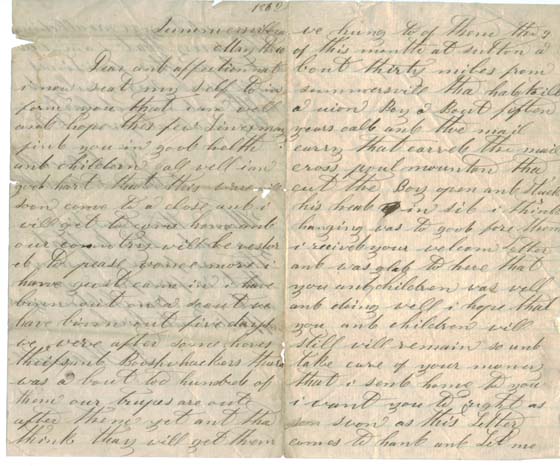 1862
Sumersville
May the 10
Dear and affectionat
i now seat my self to in
form you that i am well
and hope this few Lines may
find you in good helth
and children all well i am
good hart that this ware will
soon come to a close and i
will get to come home and
our countries will be restor
ed to peace wonce more i
have just came in i have
binn out on a scout we
have binn out five days
we were after some hores
theifs and Booshwhackers thare
was a bout too hundreds of
them our trupes are out
after them yet and tha
think thay will get them
we hung to of them the 9
of this month at sutton a
bout thirty miles from
summersvill tha had kild
a union Boy a Bout fifteen
years oald and the mail
carry that carred the mail
cross powl mounton tha
cut the Boy open and stuck
his head in sid i think
hanging was to good fore them
i recived your welcom letter
and was glad to here that
you and children was well
and doing well i hope that
you and children will
still will remain so and
take care of your money
that i send home to you
i want you to right as
soon as this Letter
comes to hand and Let me